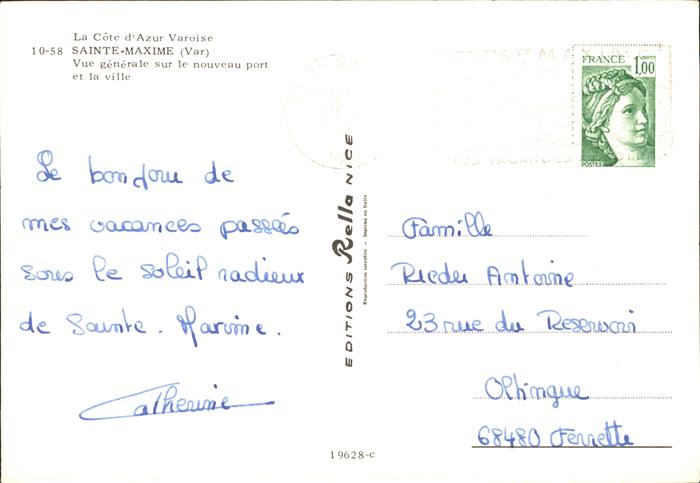 La Côte d'Azur Varoise
10-58 SAINTE-MAXIME (Var)
Vue générale sur le nouveau port
et la ville
Le bonjour de
mes vacances passées
sous le soleil radieux
de Sainte-Maxime.
Catherine
EDITIONS Rella NICE
Reproduction interdite - Imprimé en Italie
19628-c
STE MAXIME
VACANCES
FRANCE 1,00
POSTES
Famille
Rieder Antoine
23 rue du Reservoir
Oltingue
68480 Ferrette